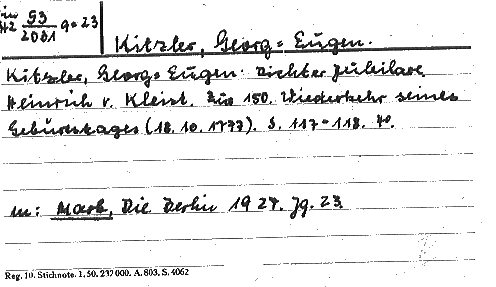 53
2081 9=23
Kitzler, Georg=Eugen.
Kitzler, Georg=Eugen. Dichter Jubilare.
Heinrich v. Kleist. Zur 150. Wiederkehr seines
Geburtstages (18. 10. 1777). S. 117-118. 4o.
in: Mark, Die Berlin 1927. Jg. 23.
Reg. 10. Stichnote. 1. 50. 237 000. A. 803. S. 4062